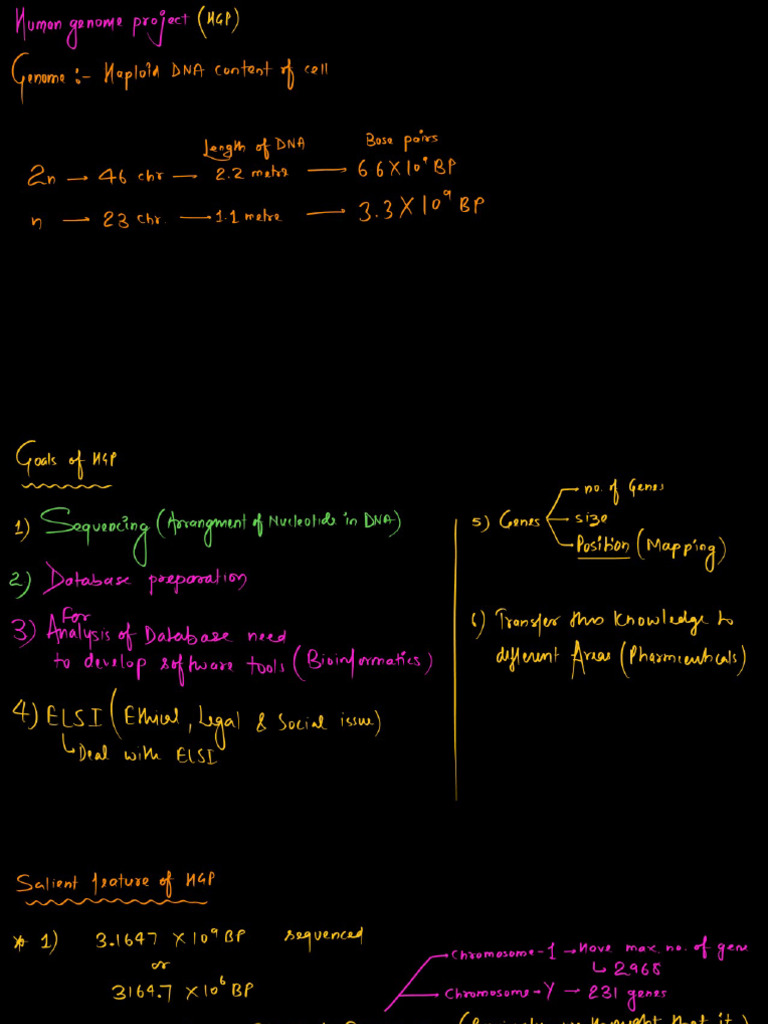 Human genome project (HGP)
Genome :- Haploid DNA content of cell
Length of DNA Base pairs
2n → 46 chr → 2.2 metre → 6.6 X 10⁹ BP
n → 23 chr. → 1.1 metre → 3.3 X 10⁹ BP
Goals of HGP
1) Sequencing (Arrangment of Nucleotide in DNA)
2) Database preparation
3) For Analysis of Database need
to develop software tools (Bioinformatics)
4) ELSI (Ethical, Legal & Social issue)
↳ Deal with ELSI
5) Genes
no. of Genes
size
Position (Mapping)
6) Transfer this Knowledge to
different Areas (Pharmceuticals)
Salient feature of HGP
* 1) 3.1647 X 10⁹ BP sequenced
or
3164.7 X 10⁶ BP
Chromosome-1 → Have max. no. of gene
↳ 2968
Chromosome-Y → 231 genes